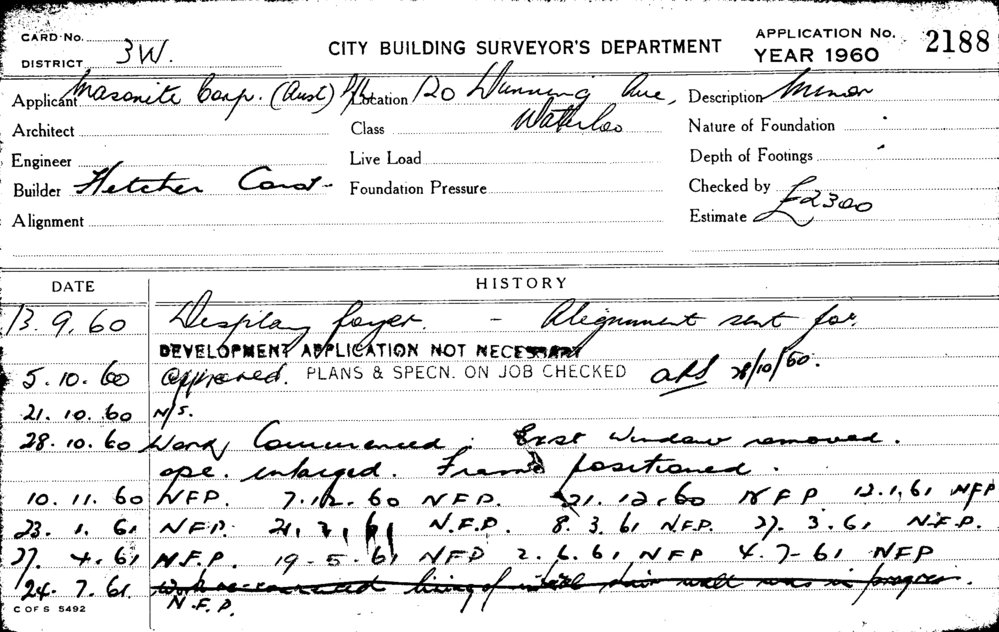 CARD No.
DISTRICT 3W.
CITY BUILDING SURVEYOR'S DEPARTMENT
APPLICATION No. 2188
YEAR 1960
Applicant Masonite Corp. (Aust) P/L
Location 120 Dunning Ave, Waterloo
Description Minor
Architect
Class
Nature of Foundation
Engineer
Live Load
Depth of Footings
Builder Fletcher Const-
Foundation Pressure
Checked by
Alignment
Estimate £2300
DATE HISTORY
13.9.60 Display foyer. - Alignment sent for.
DEVELOPMENT APPLICATION NOT NECESSARY
5.10.60 Approved. PLANS & SPECN. ON JOB CHECKED 28/10/60.
21.10.60 N/S.
28.10.60 Work Commenced. Exst Window removed.
ope. enlarged. Frame positioned.
10.11.60 NFP. 7.12.60 NFP. 21.12.60 NFP 12.1.61 NFP
23.1.61 NFP. 21.2.61 N.F.P. 8.3.61 NFP. 27.3.61 N.F.P.
27.4.61 N.F.P. 19-5-61 NFP 2.6.61 NFP 4.7-61 NFP
24.7.61 lining of wall was in progress.
N.F.P.
C OF S 5492